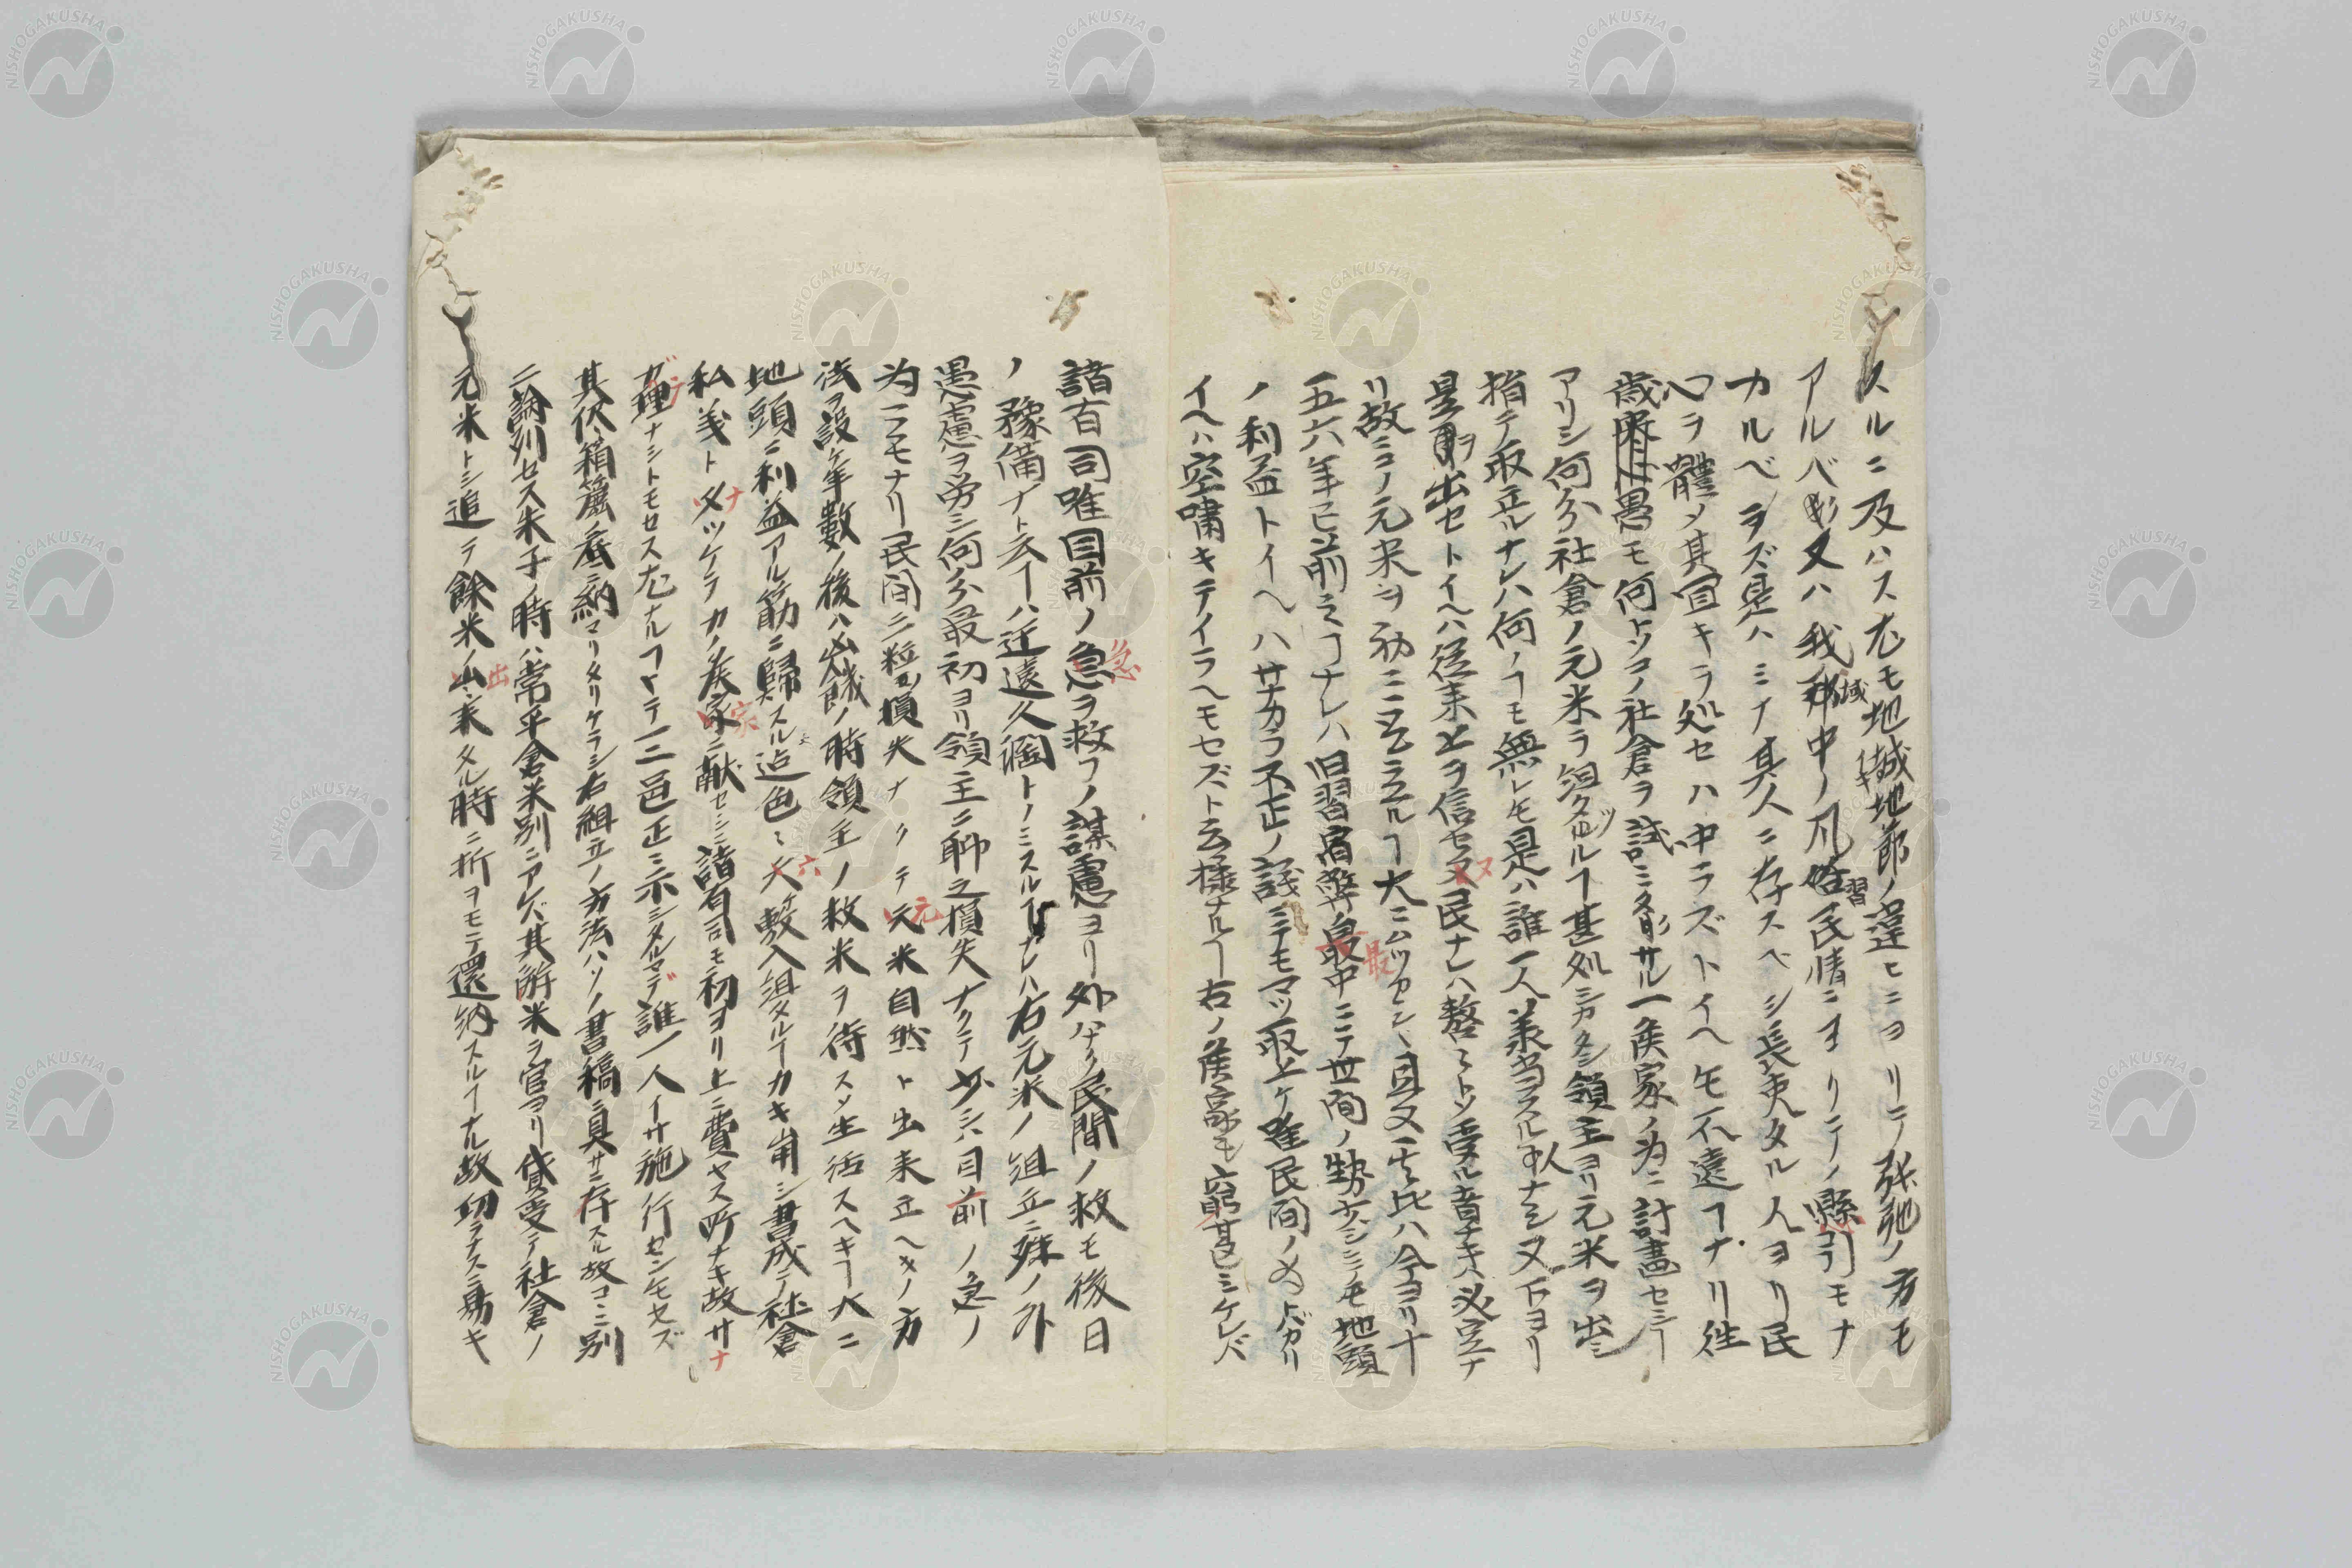 スルニ及ハス尤モ地域地節ノ違ヒニヨリテ張弛ノ方モ
アルベ彫又ハ我邦域中ノ風俗習民情ニヨリテノ縣引モナ
カルベラズ是ハミナ其人ニ存スベシ長吏タル人ヨリ民
心ヲ體ノ其宜キラ処セハ中ラズトイヘモ不遠ヿナリ徃
歳愚モ何トソコノ社倉ヲ試ミタ彫サル一矦家ノ為ニ計畫セシヿ
アリシ何分社倉ノ元米ラ組タルルヿ甚処シカタシ領主ヨリ元米ヲ出シ
指テ取立ルナレハ何ノヿモ無レモ是ハ誰一人兼当スル人ナシ又下ヨリ
是ヲ出セトイヘハ従来上ヲ信セヌ民ナレハ嗸ミトソ受ル音ナキハ必定ナ
リ故ニコノ元米ヲ初ニ立ルヿ大ニムツカシ且又其比ハ今ヨリ十
五六年已前之ヿナレハ旧習宿弊最中ニテ世間ノ勢少シニテモ地頭
ノ利益トイヘハサカラ不正ノ議ニテモマツ取上ケ唯民間ノ為バカリ
イヘハ空嘯キテイラヘモセズト云様ナルヿ右ノ矦家モ窮甚シケレバ
諸百司唯目前ノ急ヲ救フノ謀慮ヨリ外ハナク民間ノ救モ後日
ノ豫備ナト云ヿハ迂遠久濶トノミスルヿナレハ右元米ノ組立ニ殊ノ外
愚慮ヲ労シ何分最初ヨリ領主ニ聊之損失ナクテ少シハ目前ノ急ノ
為ニモナリ民間ニ一粒ノ損失ナクテ元米自然ト出来立ヘキノ方
法ヲ設ケ年數ノ後ハ凶餓ノ時領主ノ救米ヲ待スソ生活スヘキヿ大ニ
地頭ニ利益アル筋ニ歸スル迄色ミ六ケ敷入組タルヿカキ崩シ書成テ社倉
私義トナツケテカノ矦家ニ献セシニ諸有司モ初ヨリ上ニ費ヤス所ナキ故サナ
ガラ理ナシトモセス尤ナルヿトテ一二邑正ニ示シタルマデ誰一人イサ施行センモセズ
其侭箱篋ノ底ニ納マリタリケラシ右組立ノ方法ハソノ書稿ニ具サニ存スル故コヽニ別
ニ論列セス朱子ノ時ハ常平倉米別ニアレバ其觧米ラ官ヨリ貸受テ社倉ノ
元米トシ追テ餘米ノ出来タル時ニ折ヲモテ還納スルヿナル故切ラナスニ易キ